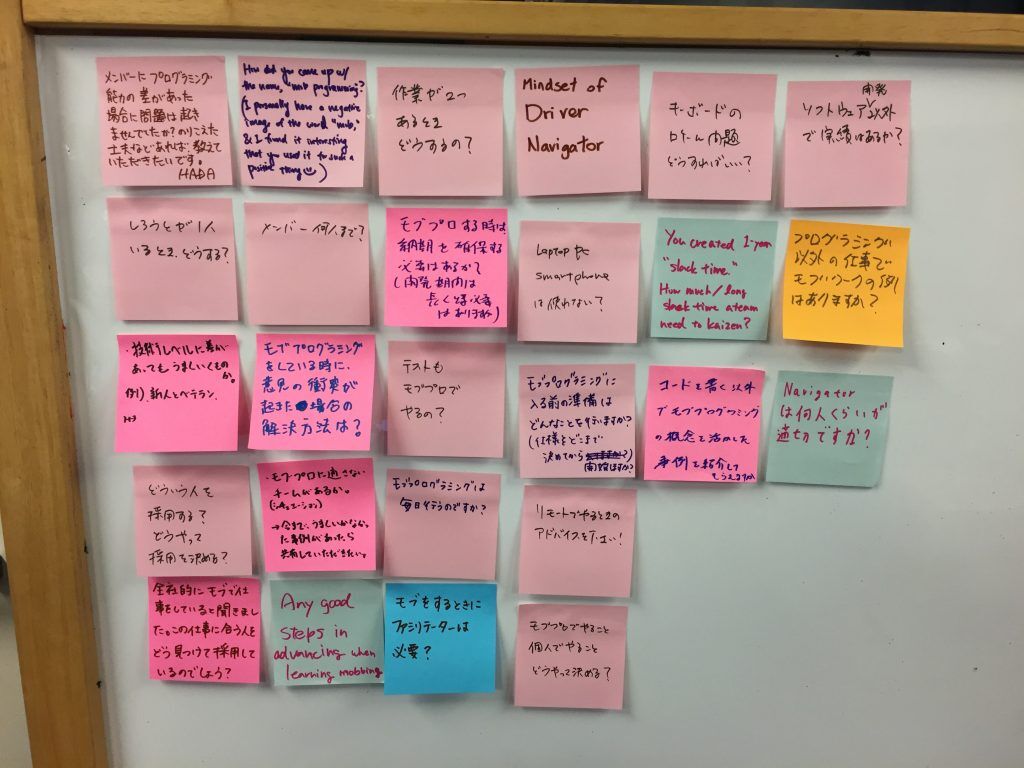 メンバーにプログラミング
能力の差があった
場合に問題は起き
ませんでしたか？のりこえた
工夫などあれば、教えて
いただきたいです。
HADA
How did you come up w/
the name, "mob programming"?
(I personally have a negative
image of the word "mob,"
& I found it interesting
that you used it to such a
positive thing)
作業が2つ
あるとき
どうするの？
Mindset of
Driver
Navigator
キーボードの
ロケール問題
どうすればいい？
開発
ソフトウェア以外
で実績はあるか？
しろうとが1人
いるとき、どうする？
メンバー何人まで？
モブプロする時は
納期を確保する
必要はあるか？
(開発期間は
長くする必要
はありますか)
Laptop や
smartphone
は使わない？
You created 1-year
"slack time."
How much/long
slack time a team
need to kaizen?
プログラミング
以外の仕事で
モブワークの例
はありますか？
・技術レベルに差が
あってもうまくいくもの
か。
例) 新人とベテラン
モブプログラミング
をしている時に、
意見の衝突が
起きた場合の
解決方法は？
テストも
モブプロで
やるの？
モブプログラミングに
入る前の準備は
どんなことを行いますか？
(仕様をどこまで
決めてから
開始はすか？)
コードを書く以外
でモブプログラミング
の概念を活かした
事例を紹介して
もらえますか
Navigator
は何人くらいが
適切ですか？
どういう人を
採用する？
どうやって
採用を決める？
・モブプロに適さない
チームがあるか。
(シチュエーション)
→今まで、うまくいかなかっ
た事例があったら
共有していただきたい。
モブプログラミングは
毎日行うのですか？
リモートでやるときの
アドバイスを下さい！
全社的にモブで仕
事をしていると聞きまし
た。この仕事に合う人を
どう見つけて採用して
いるのでしょう？
Any good
steps in
advancing when
learning mobbing
モブをするときに
ファシリテーターは
必要？
モブプロでやること
個人でやること
どうやって決める？